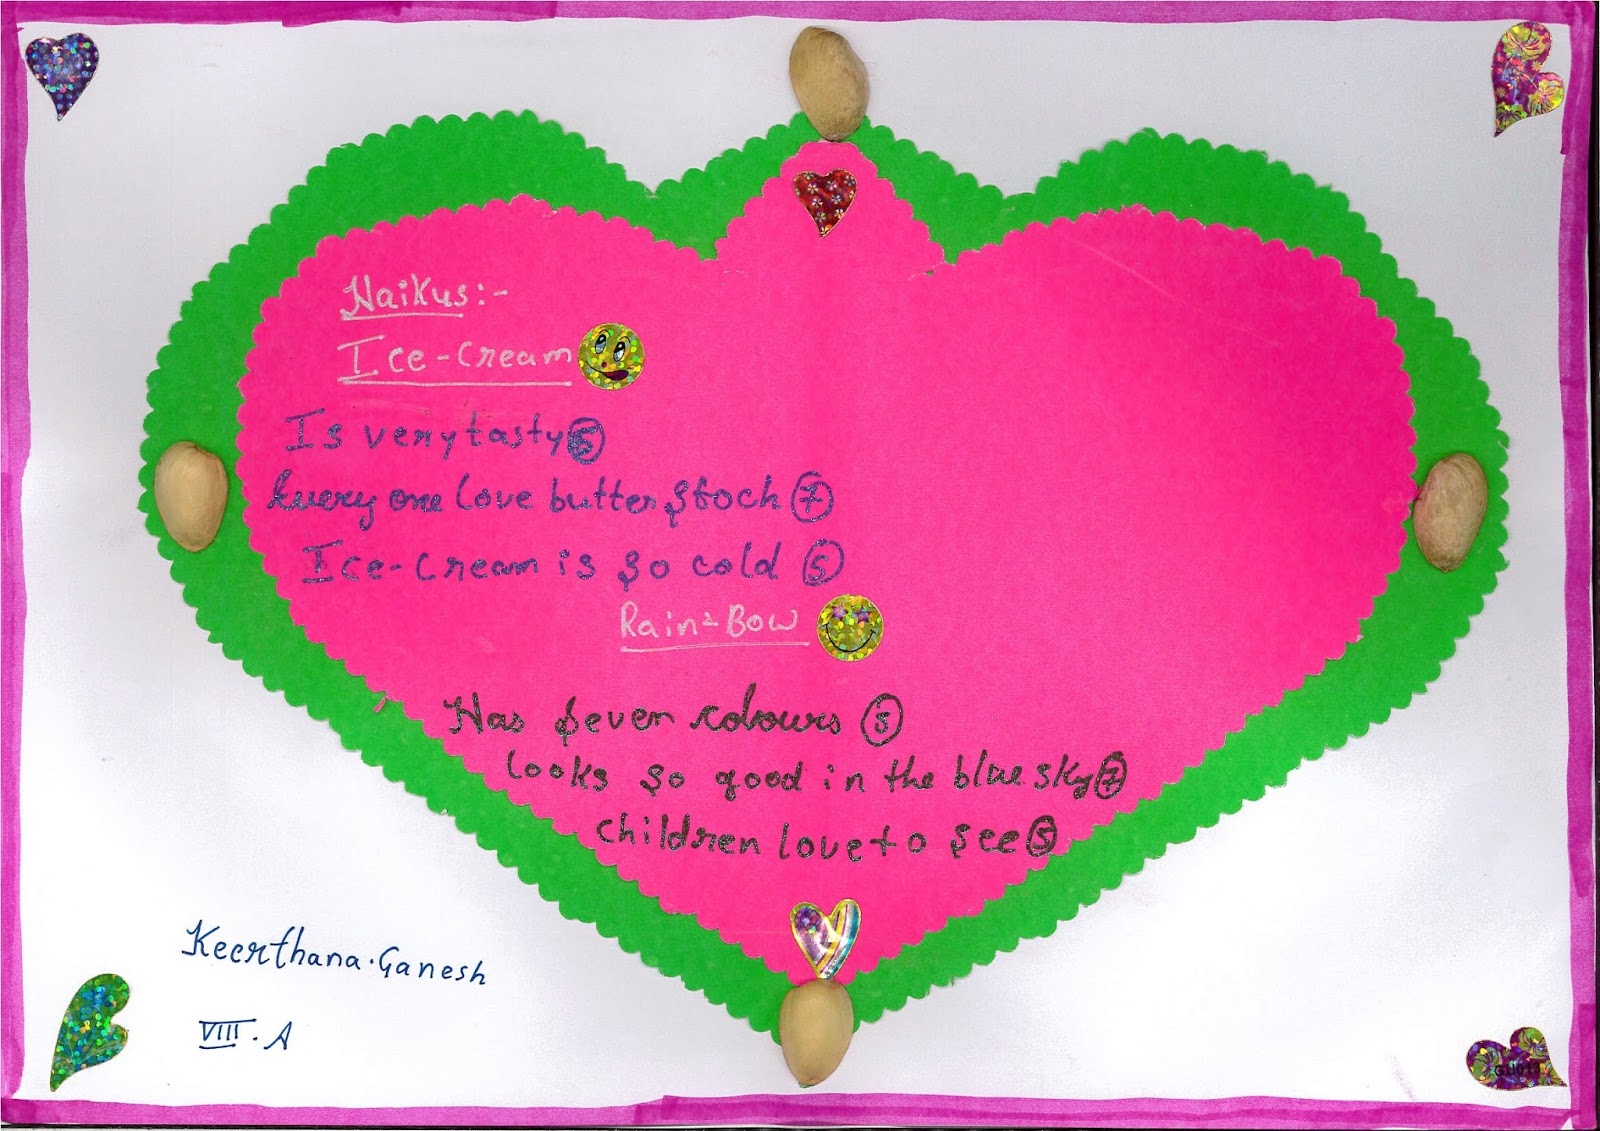 Haikus:-
Ice-cream
Is very tasty 5
Every one love butter stoch 7
Ice-cream is so cold 5
Rain-Bow
Has seven colours 5
looks so good in the blue sky 7
children love to see 5
Keerthana.Ganesh
VIII.A
GU013